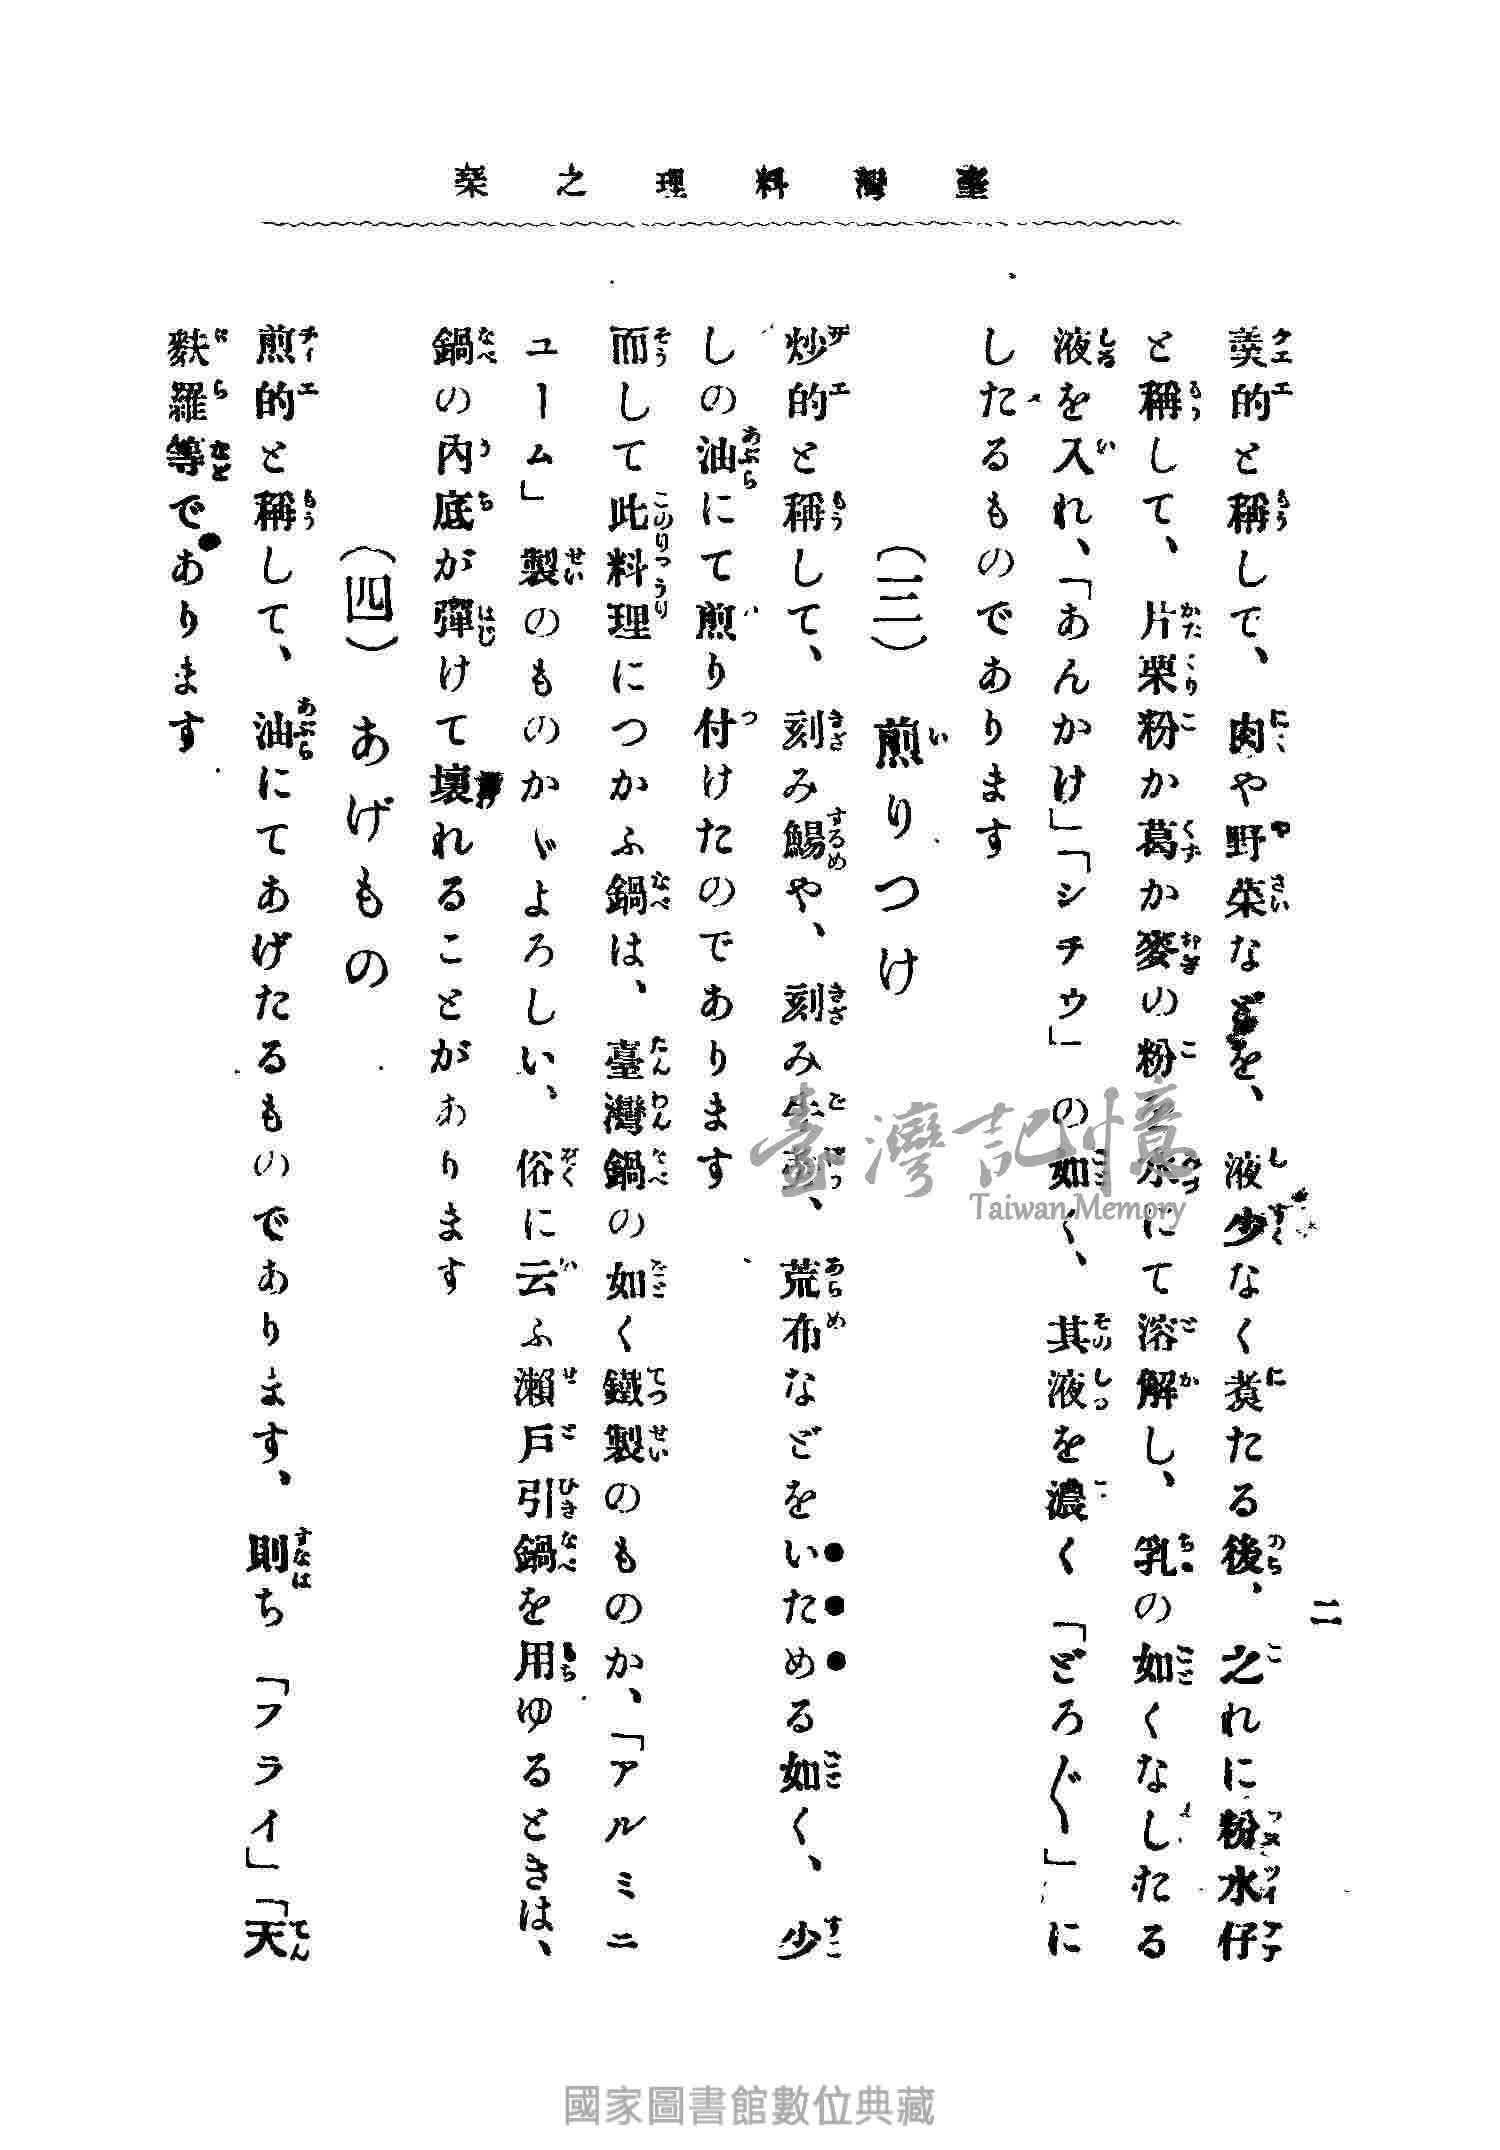 臺灣料理之栞
二
羹的と稱して、肉や野菜などを、液少なく煮たる後、之れに粉水仔
と稱して、片栗粉か葛か麥の粉を水にて溶解し、乳の如くなしたる
液を入れ、「あんかけ」「シチゥ」の如く、其液を濃く「どろ〴〵」に
したるものであります
(三) 煎りつけ
炒的と稱して、刻み鯣や、刻み牛蒡、荒布などをいためる如く、少
しの油にて煎り付けたのであります
而して此料理につかふ鍋は、臺灣鍋の如く鐵製のものか、「アルミニ
ューム」製のものかゞよろしい、俗に云ふ瀬戸引鍋を用ゆるときは、
鍋の內底が彈けて壞れることがあります
(四) あげもの
煎的と稱して、油にてあげたるものであります、則ち「フライ」「天
麩羅等であります
臺灣記憶
Taiwan Memory
國家圖書館數位典藏